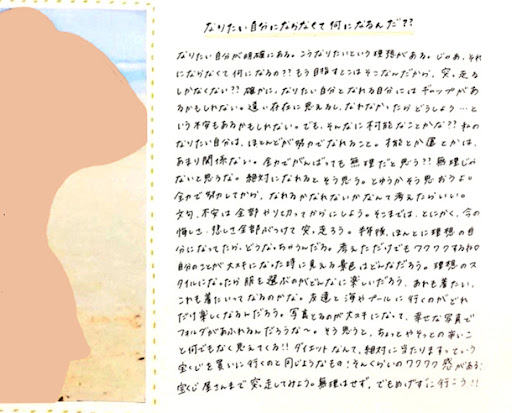 なりたい自分にならなくて何になるんだ??
なりたい自分が明確にある。こうなりたいという理想がある。じゃあ、それ
にならなくて何になるの??もう目指すとこはそこなんだから、突っ走る
しかなくない??確かに、なりたい自分となれる自分にはギャップがあ
るかもしれない。遠い存在に思えるし、なれなかったらどうしよう…と
いう不安もあるかもしれない。でも、そんなに不可能なことかな??私の
なりたい自分は、ほとんどが努力でなれること。才能とか運とかは、
あまり関係ない。全力でがんばっても無理だと思う??無理じゃ
ないと思うな。絶対になれるとそう思う。とゆうかそう思おうよ。
全力で努力してから、なれるかなれないかなんて考えたらいい。
文句、不安は全部やり切ってからにしよう。そこまでは、とにかく、今の
悔しさ・悲しさ全部がつけて突っ走ろう。将来、ほんとに理想の自
分になってたら、どうなっちゃうんだろう。考えただけでもワクワクするね
自分のことが大スキになった時に見える景色はどんなだろう。理想のス
タイルになったら服を選ぶのがどんなに楽しいだろう、あれも着たい、
これも着たいってなるのかな。友達と海やプールに行くのがどれ
だけ楽しくなるんだろう。写真とるのが大スキになって、幸せな写真で
フォルダがあふれるんだろうな〜。そう思うと、ちょっとやそっとの辛いこ
と何でもなく思えてくる!!ダイエットなんて、絶対に当たりますっていう
宝くじを買いに行くのと同じようなもの!そんくらいのワクワク感がある!
宝くじ屋さんまで突走してみよう。無理はせず、でもめげずに行こう!!